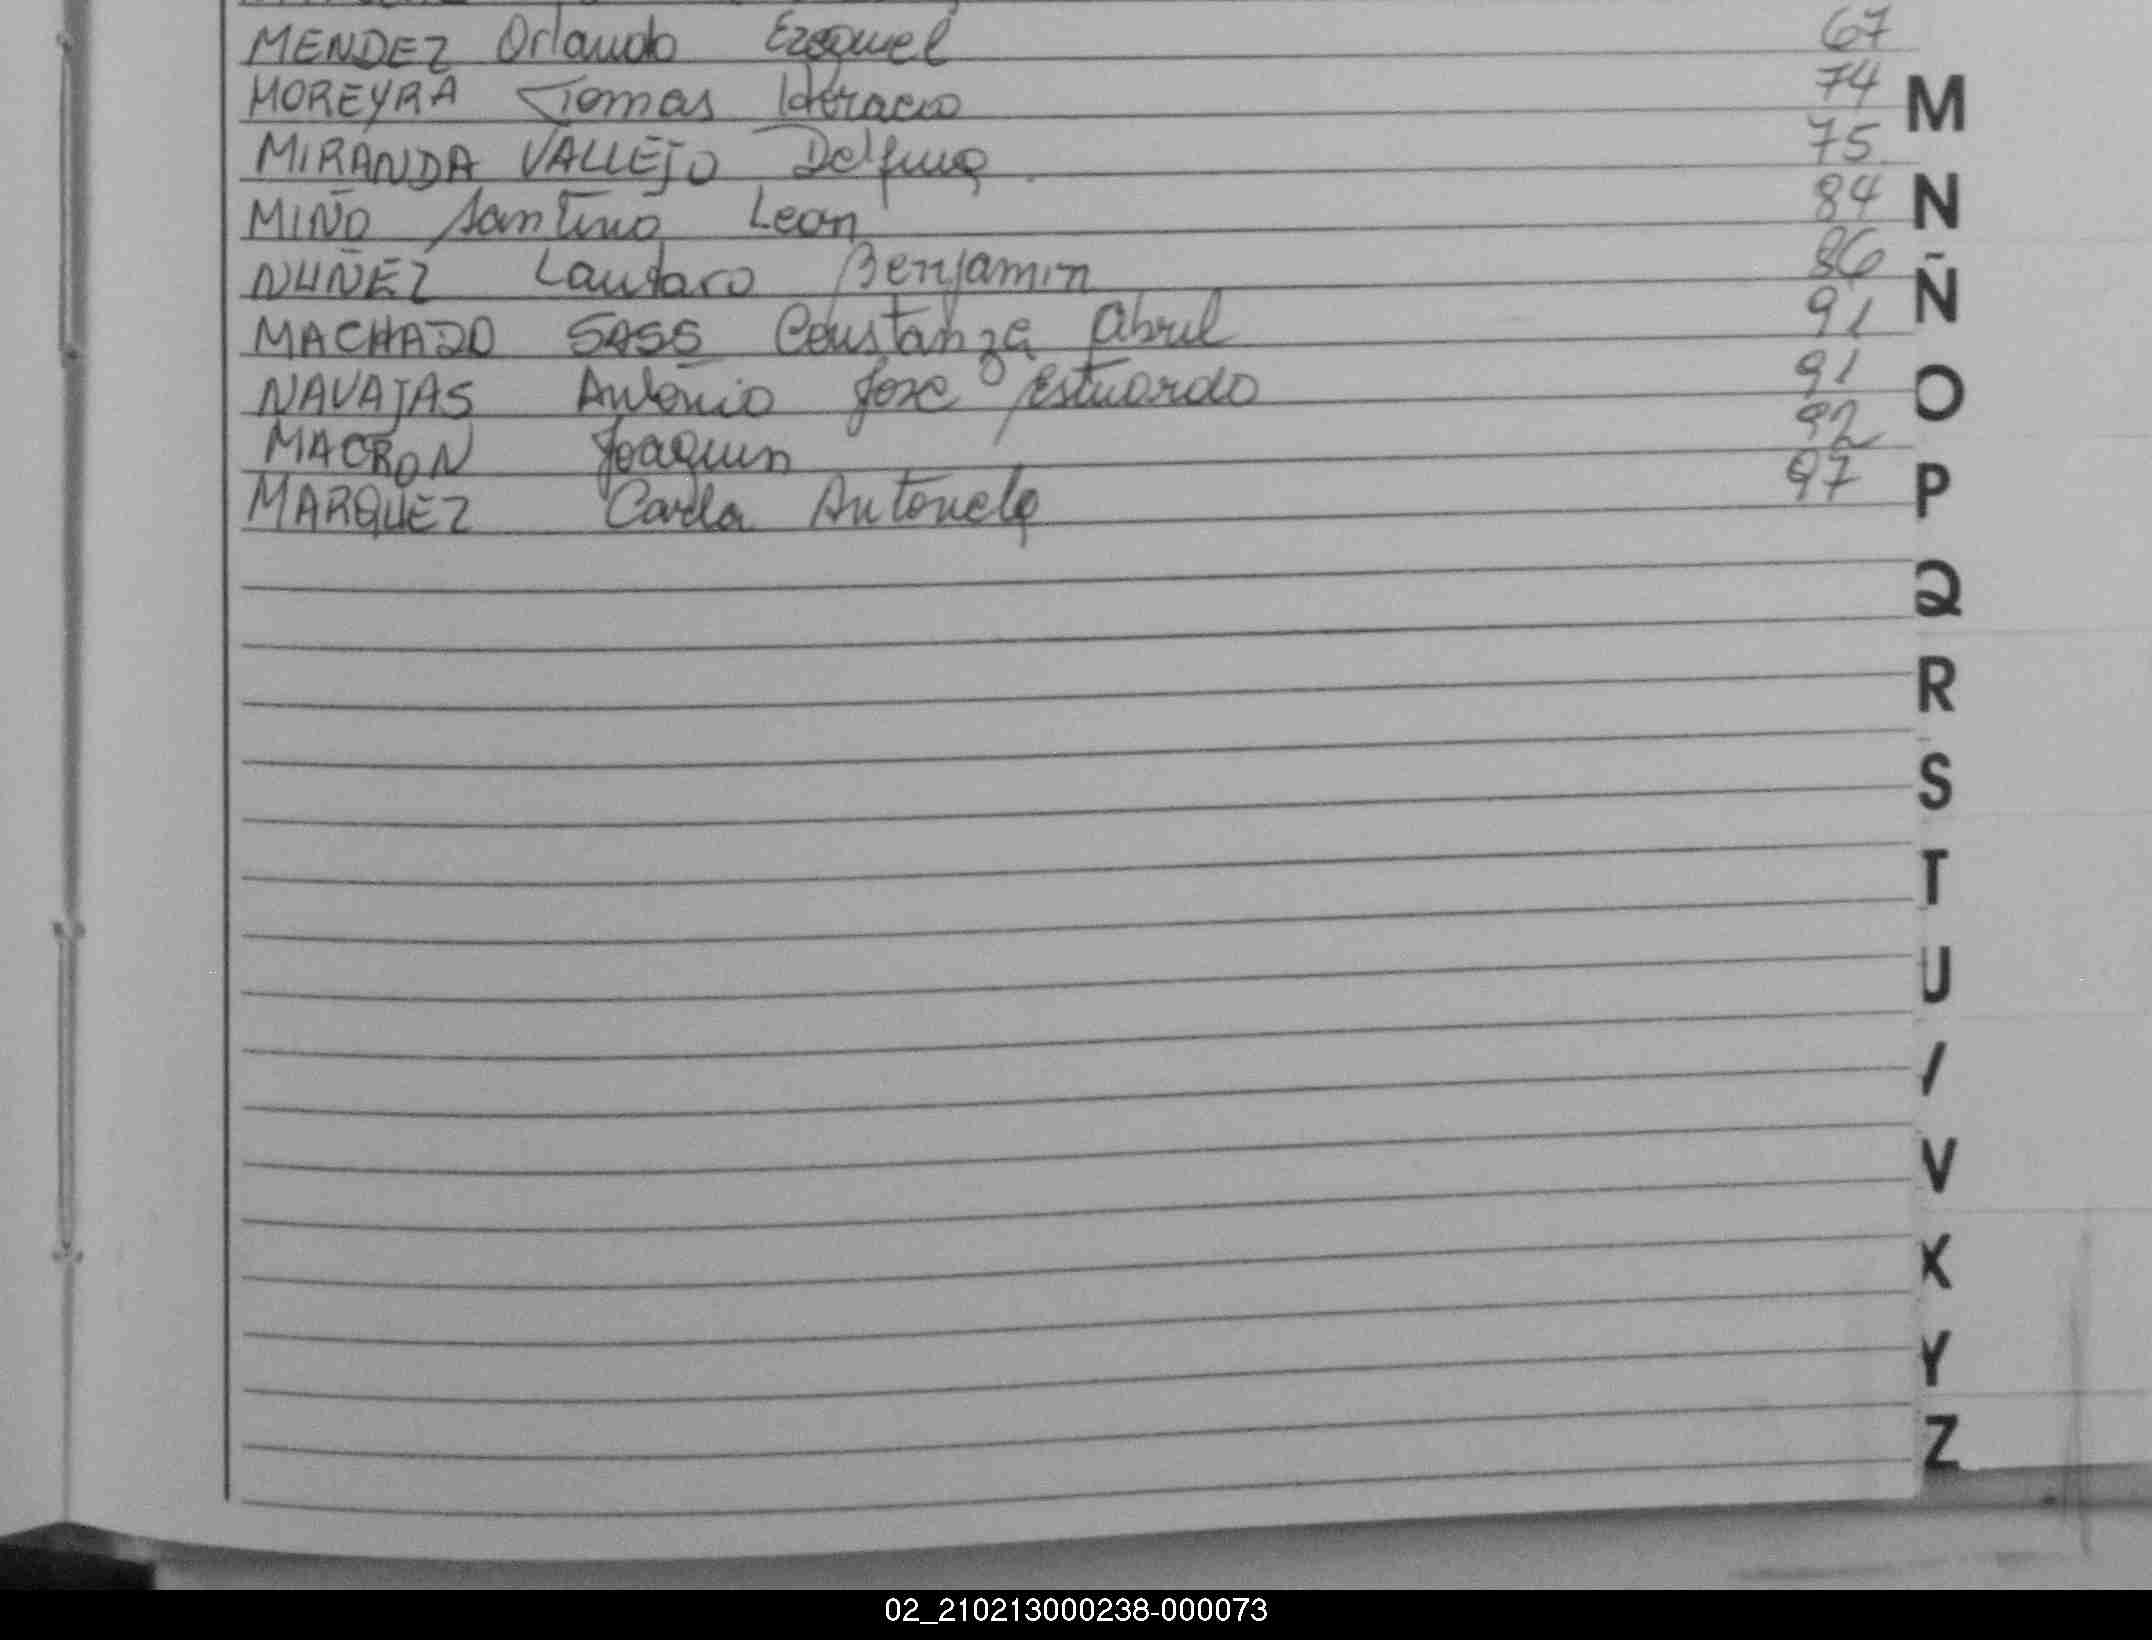 MENDEZ Orlando Ezequiel 67
MOREYRA Tomas Horacio 74
MIRANDA VALLEJO Delfina 75
MIÑO Santino Leon 84
NUÑEZ Lautaro Benjamin 86
MACHADO SASS Constanza Abril 91
NAVAJAS Antonio Jose Estuardo 91
MACRON Joaquin 92
MARQUEZ Carla Antonela 97
M
N
Ñ
O
P
Q
R
S
T
U
/
V
X
Y
Z
02_210213000238-000073